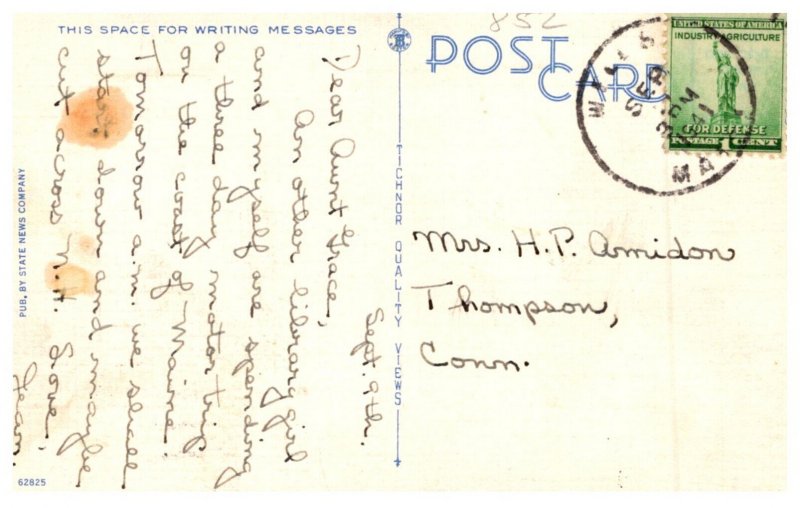 THIS SPACE FOR WRITING MESSAGES
POST
CARD
852
UNITED STATES OF AMERICA
INDUSTRY AGRICULTURE
FOR DEFENSE
POSTAGE 1 CENT
WELLS
SEP
PM
1941
MA
Sept. 9th.
Dear Aunt Grace,
An other library girl
and myself are spending
a three day motor trip
on the coast of Maine.
Tomorrow a.m. we shall
start down and maybe
cut across N.H. Love,
Jean.
Mrs. H.P. Amidon
Thompson,
Conn.
TICHNOR QUALITY VIEWS
PUB. BY STATE NEWS COMPANY
62825